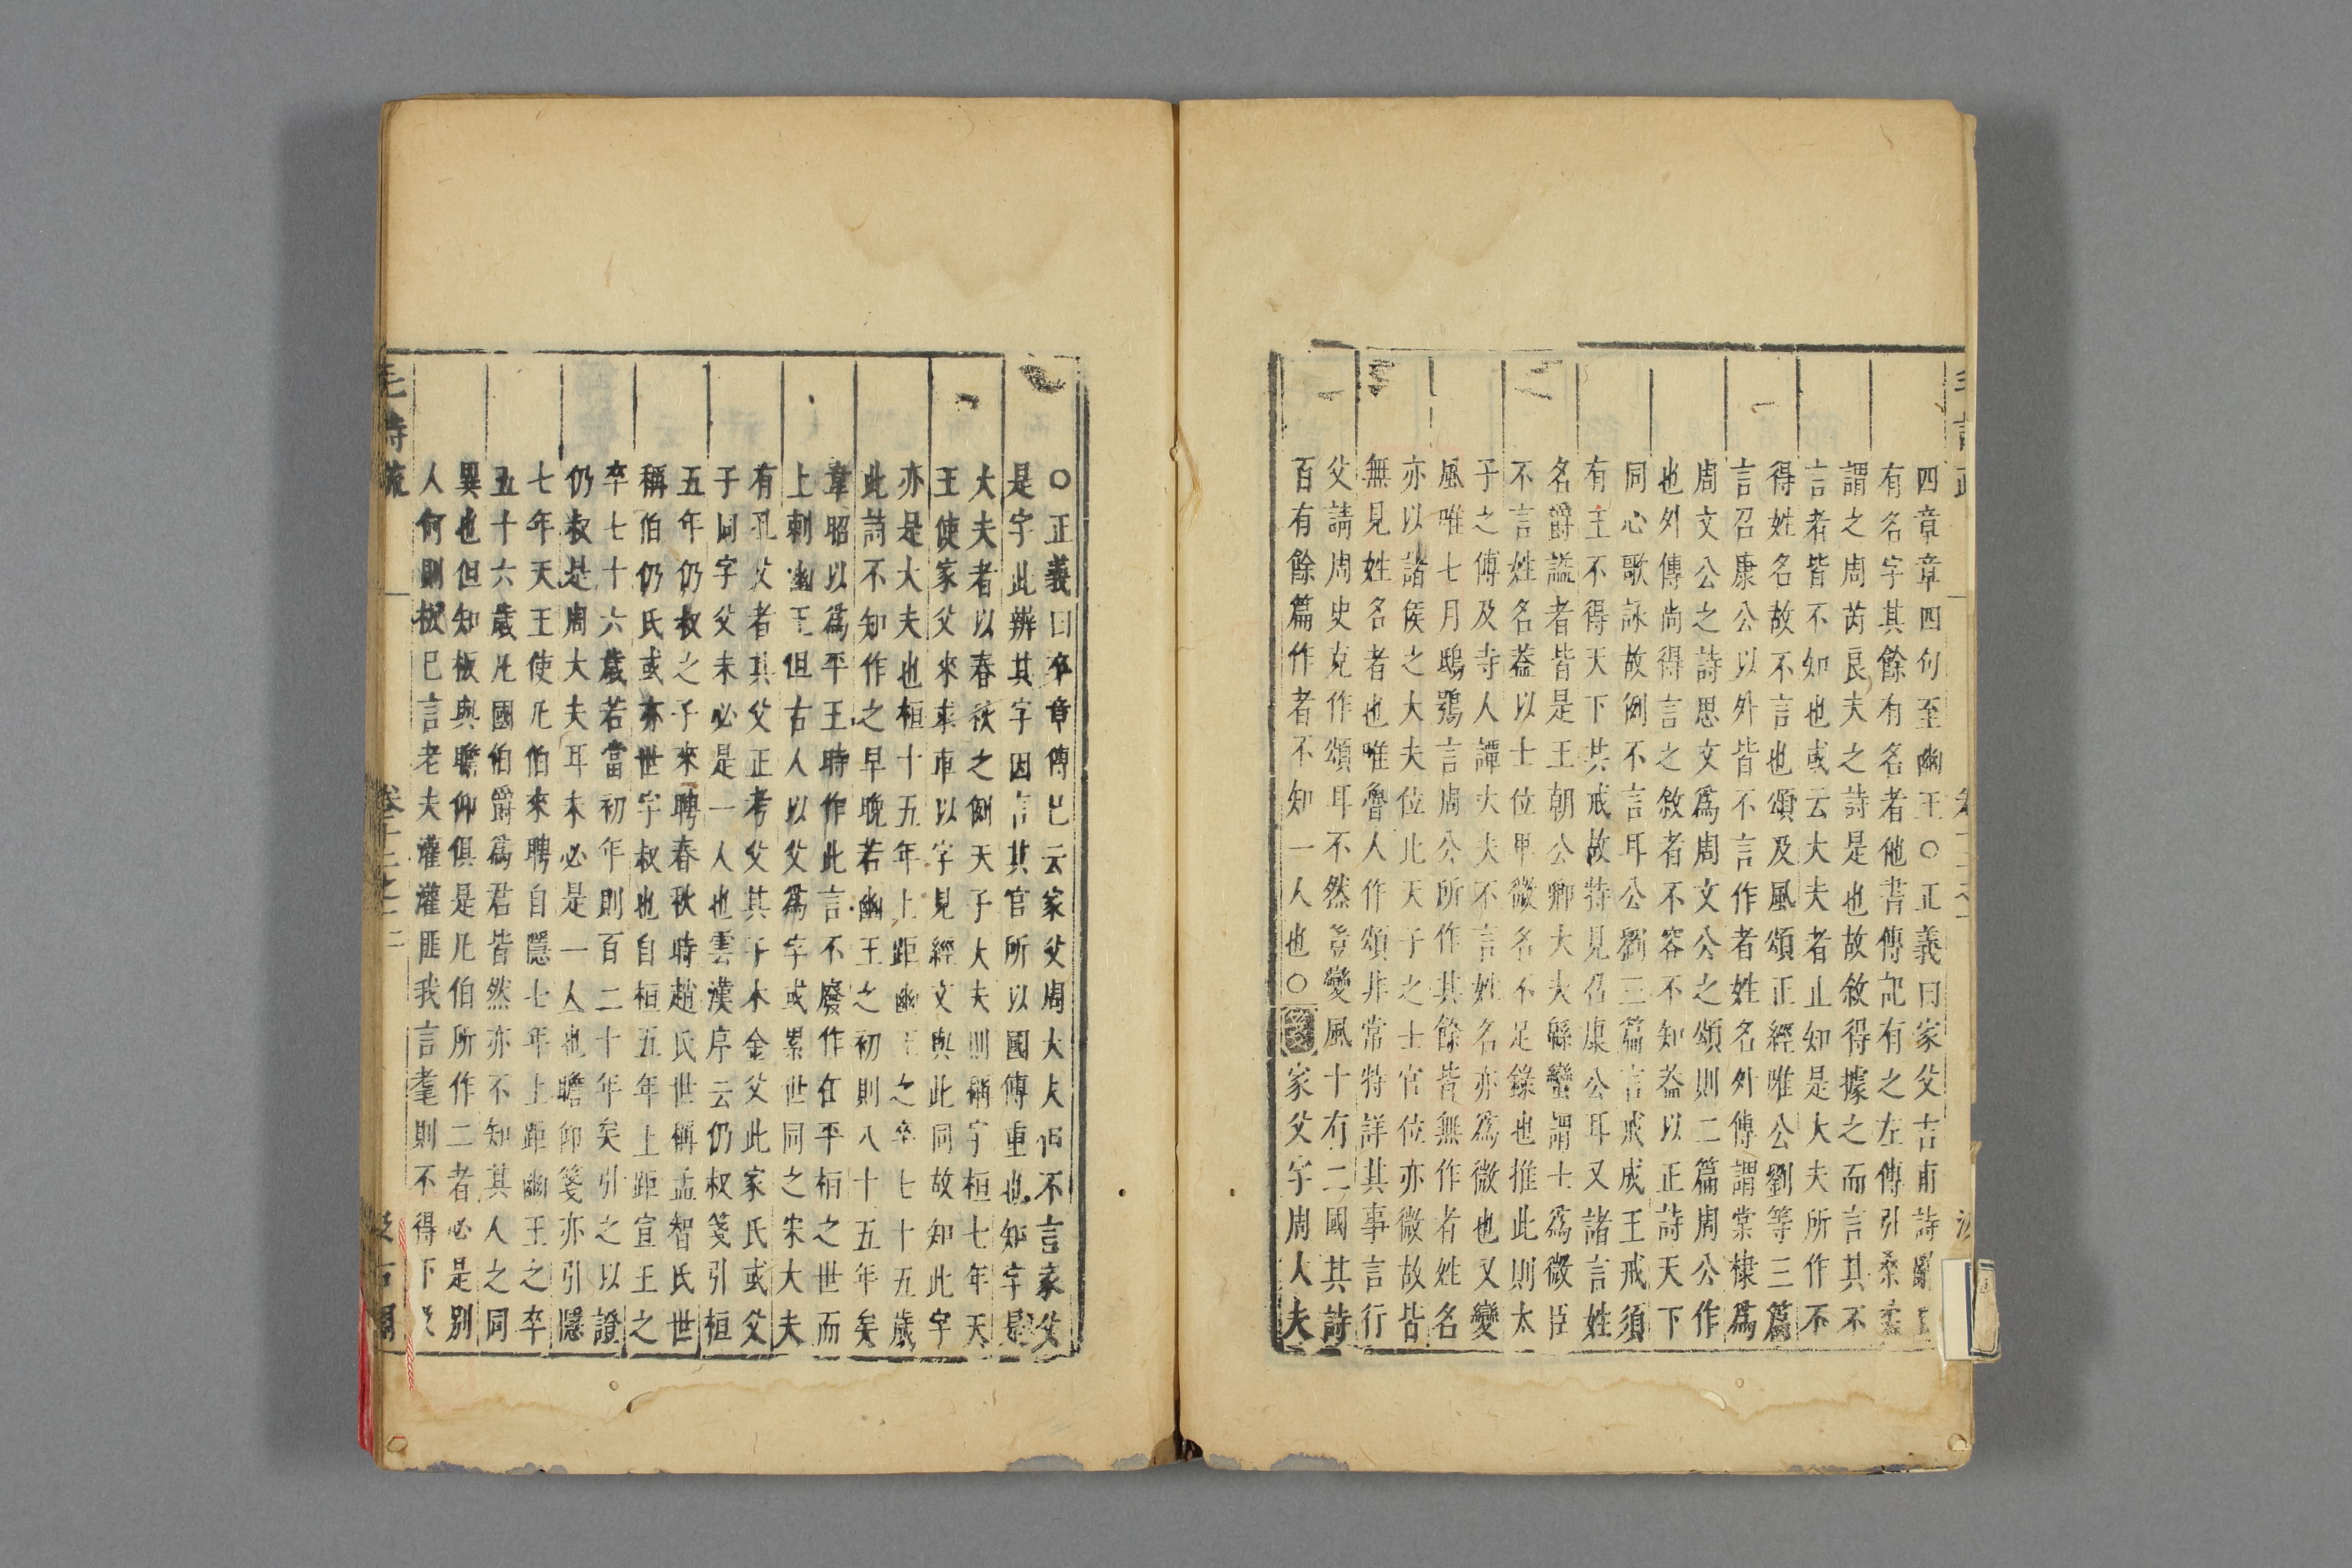 四章章四句至幽王○正義曰家父吉甫詩辭
有名字其餘有名者他書傳記有之左傳引桑柔
謂之周芮良夫之詩是也故敘得據之而言其不
言者皆不知也或云大夫者止知是大夫所作不
得姓名故不言也頌及風頌正經唯公劉等三篇
言召康公以外皆不言作者姓名外傳謂棠棣爲
周文公之詩思文爲周文公之頌則二篇周公作
也外傳尚得言之敘者不容不知葢以正詩天下
同心歌詠故例不言耳公劉三篇言戒成王戒須
有主不得天下共戒故特見召康公耳又諸言姓
名爵謚者皆是王朝公卿大夫緜蠻謂士爲微臣
不言姓名葢以士位卑微名不足錄也推此則太
子之傅及寺人譚大夫不言姓名亦爲微也又變
風唯七月鴟鴞言周公所作其餘皆無作者姓名
亦以諸侯之大夫位此天子之士官位亦微故皆
無見姓名者也唯魯人作頌非常特詳其事言行
父請周史克作頌耳不然豈變風十有二國其詩
百有餘篇作者不知一人也○家父字周大夫
○正義曰卒章傳巳云家父周大夫但不言家父
是字此辨其字因言其官所以國傳重也知字是
大夫者以春秋之例天子大夫則稱字桓七年天
王使家父來求車以字見經文與此同故知此字
亦是大夫也桓十五年上距幽王之卒七十五歲
此詩不知作之早晚若幽王之初則八十五年矣
韋昭以爲平王時作此言不廢作在平桓之世而
上刺幽王但古人以父爲字或累世同之宋大夫
有孔父者其父正考父其子木金父此家氏或父
子同字父未必是一人也雲漢序云仍叔箋引桓
五年仍叔之子來聘春秋時趙氏世稱孟智氏世
稱伯仍氏或亦世字叔也自桓五年上距宣王之
卒七十六歲若當初年則百二十年矣引之以證
仍叔是周大夫耳未必是一人也瞻仰箋亦引隱
七年天王使凡伯來聘自隱七年上距幽王之卒
五十六歲凡國伯爵爲君皆然亦不知其人之同
異也但知板與瞻仰俱是凡伯所作二者必是別
人何則板巳言老夫灌灌匪我言耄則不得下及
毛詩疏 卷十二之一 二 汲古閣